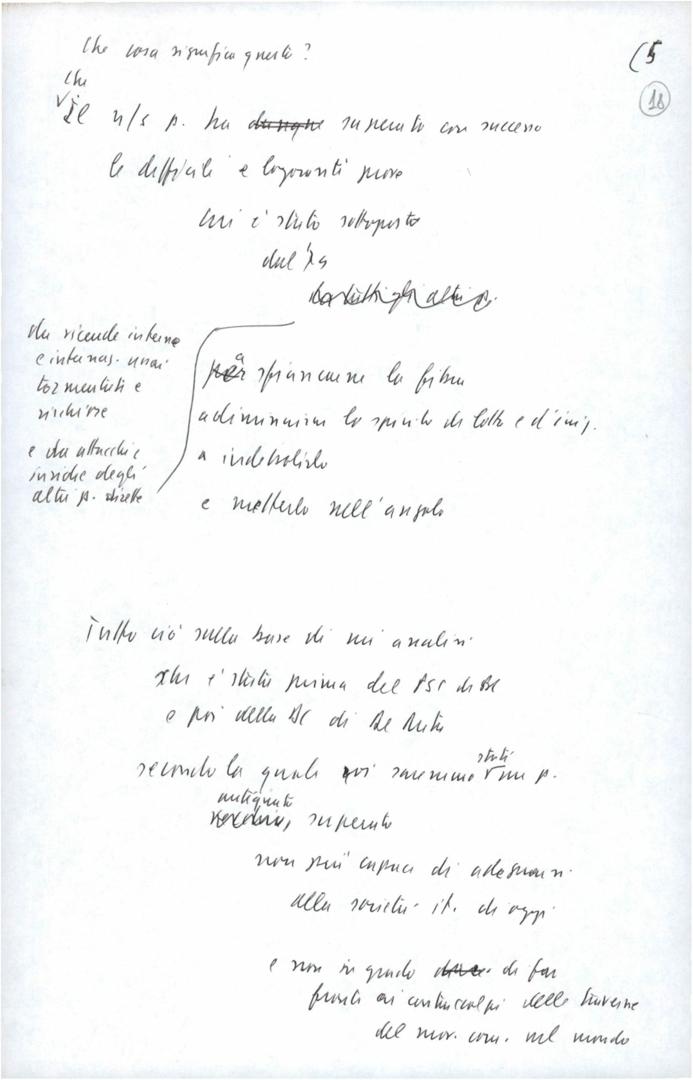 Che cosa significa questo?
(5
18
Che
Il n/s p. ha dunque superato con successo
le difficili e logoranti prove
cui è stato sottoposto
dal
da tutti gli altri p.
da vicende interne
e internaz. assai
tormentate e
rischiose
e da attacchi e
insidie degli
altri p. dirette
a sfiancarne la fibra
a diminuirne lo spirito di lotta e d'iniz.
a indebolirlo
e metterlo nell'angolo
Tutto ciò sulla base di un'analisi
che è stata prima del PSI di BC
e poi della DC di De Mita
secondo la quale noi saremmo stati un p.
antiquato
vecchio, superato
non più capace di adeguarsi
alla società it. di oggi
e non in grado di far
fronte ai contraccolpi delle traversie
del mov. com. nel mondo